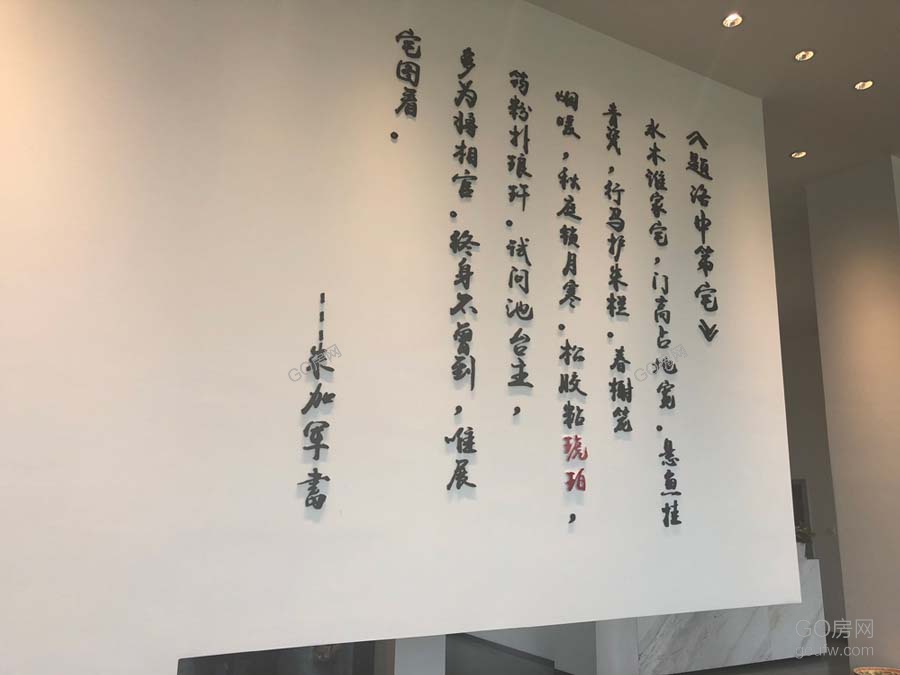 《题洛中第宅》
水木谁家宅，门高占地宽．悬鱼挂
青甃，行马护朱栏．春榭笼
烟暖，秋庭锁月寒．松胶粘琥珀，
筠粉扑琅玕．试问池台主，
多为将相官．终身不曾到，唯展
宅图看．
---朱加军書
GO房网
GO房网
GO房网
goufw.com